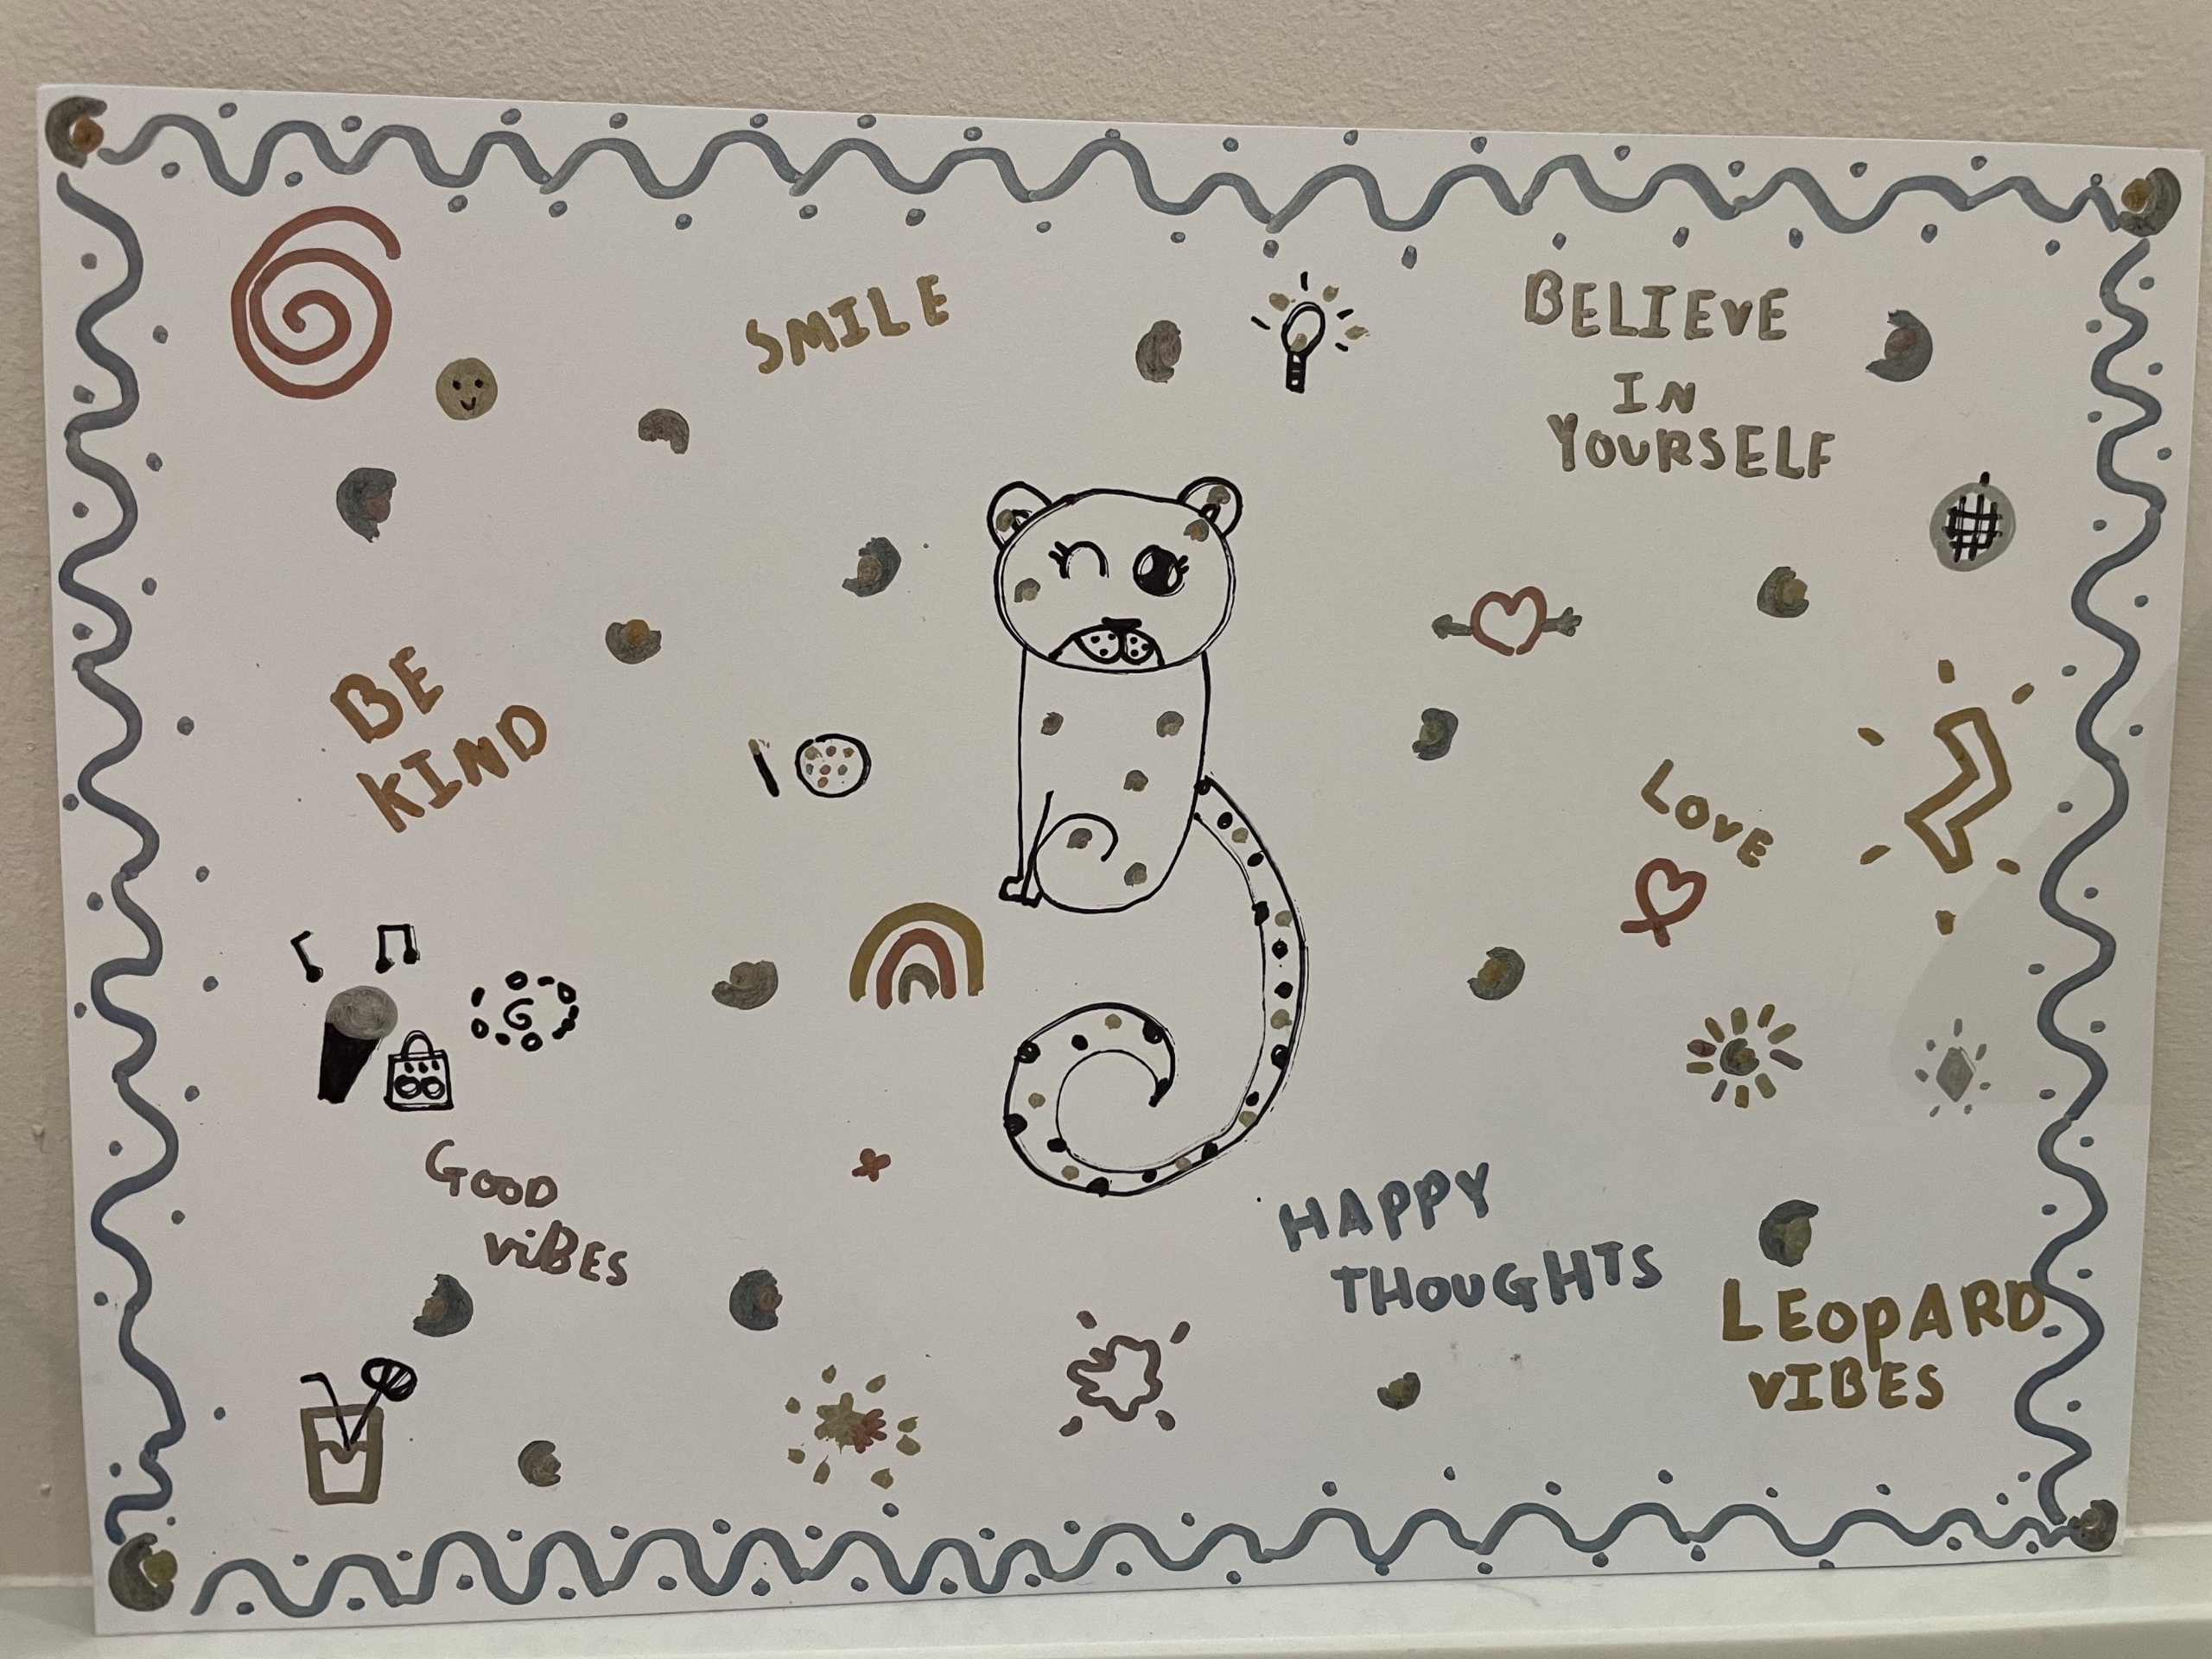 SMILE
BELIEVE
IN
YOURSELF
BE
KIND
LOVE
GOOD
viBES
HAPPY
THOUGHTS
LEOpARD
VIBES